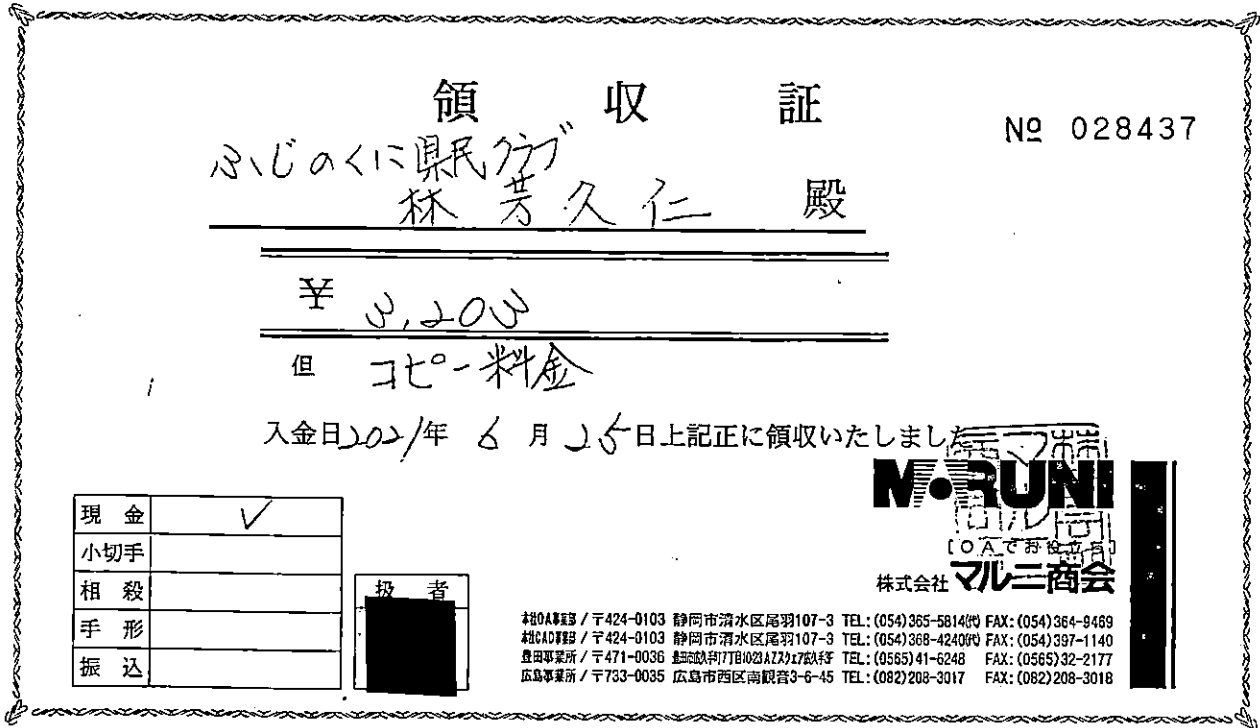 領収証
№ 028437
ふじのくに県民クラブ
林 芳久仁 殿
¥ 3,203
但 コピー料金
入金日2021年 6 月 25日上記正に領収いたしました
MARUNI
[OAでお役立ち]
株式会社 マルニ商会
現金 ✓
小切手
相殺
手形
振込
扱者
本社OA事業部 / 〒424-0103 静岡市清水区尾羽107-3 TEL:(054)365-5814(代) FAX:(054)364-9469
本社CAD事業部 / 〒424-0103 静岡市清水区尾羽107-3 TEL:(054)368-4240(代) FAX:(054)397-1140
豊田事業所 / 〒471-0036 TEL:(0565)41-6248 FAX:(0565)32-2177
広島事業所 / 〒733-0035 広島市西区南観音3-6-45 TEL:(082)208-3017 FAX:(082)208-3018